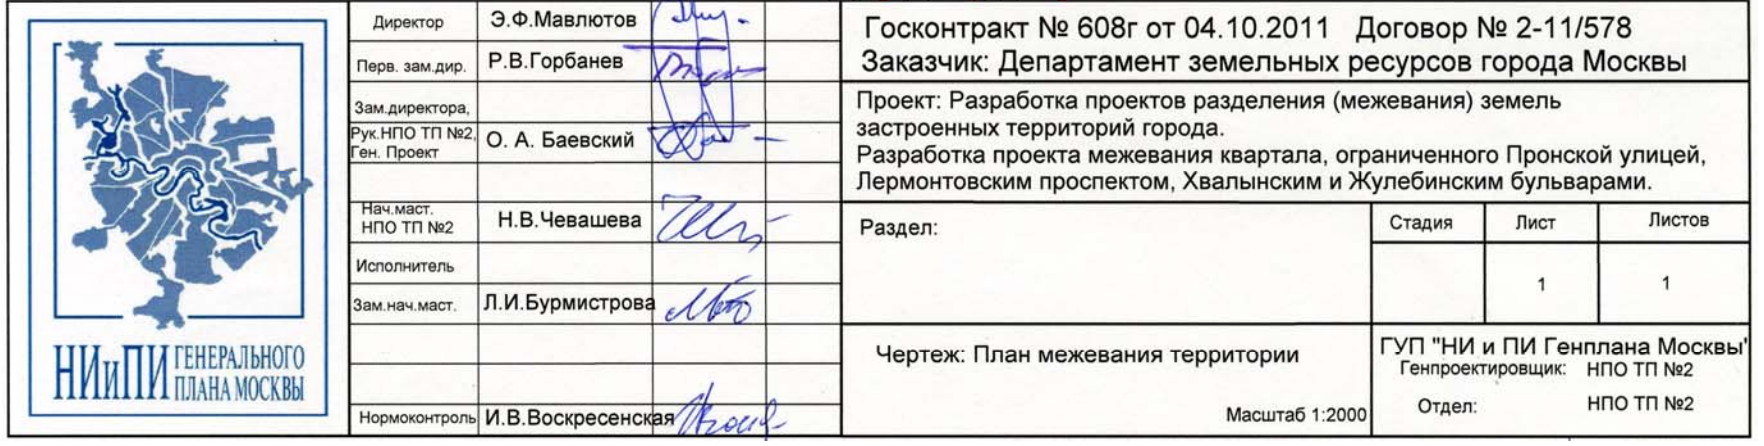 НИиПИ ГЕНЕРАЛЬНОГО
ПЛАНА МОСКВЫ
Директор Э.Ф.Мавлютов
Перв. зам.дир. Р.В.Горбанев
Зам.директора,
Рук.НПО ТП №2,
Ген. Проект О. А. Баевский
Нач.маст.
НПО ТП №2 Н.В.Чевашева
Исполнитель
Зам.нач.маст. Л.И.Бурмистрова
Нормоконтроль И.В.Воскресенская
Госконтракт № 608г от 04.10.2011 Договор № 2-11/578
Заказчик: Департамент земельных ресурсов города Москвы
Проект: Разработка проектов разделения (межевания) земель
застроенных территорий города.
Разработка проекта межевания квартала, ограниченного Пронской улицей,
Лермонтовским проспектом, Хвалынским и Жулебинским бульварами.
Раздел:
Стадия Лист Листов
1 1
Чертеж: План межевания территории
Масштаб 1:2000
ГУП "НИ и ПИ Генплана Москвы"
Генпроектировщик: НПО ТП №2
Отдел: НПО ТП №2